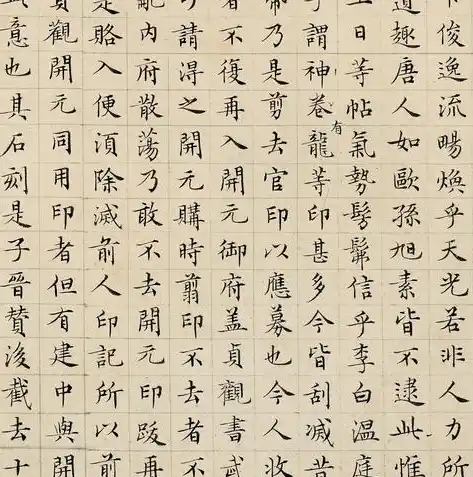 俊逸流暢煥乎天光若非人力所
道趣唐人如歐孫旭素皆不逮此惟
日等帖有氣勢髣髴信乎李白溫庭
謂神卷龍等印甚多今皆刮滅昔
帝乃是剪去官印以應募也今人收
者不復再入開元御府蓋貞觀書武
請淂之開元購時翦印不去者不
亂內府散蕩乃敢不去開元印跋再
是賂入便須除滅前人印記所以前
貞觀開元同用印者但有建中與開
意也其石刻是子晉賛後截去十